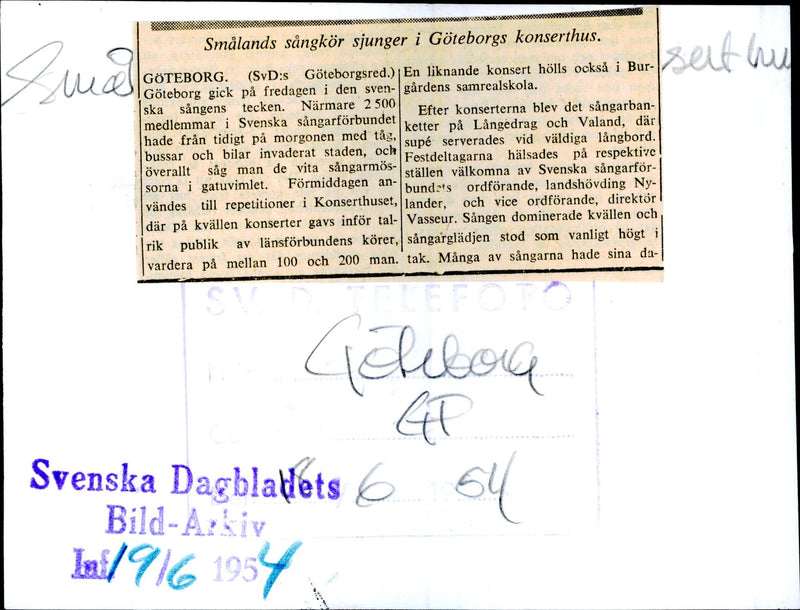 Smålands sångkör sjunger i Göteborgs konserthus.
GÖTEBORG. (SvD:s Göteborgsred.)
Göteborg gick på fredagen i den sven-
ska sångens tecken. Närmare 2 500
medlemmar i Svenska sångarförbundet
hade från tidigt på morgonen med tåg,
bussar och bilar invaderat staden, och
överallt såg man de vita sångarmös-
sorna i gatuvimlet. Förmiddagen an-
vändes till repetitioner i Konserthuset,
där på kvällen konserter gavs inför tal-
rik publik av länsförbundens körer,
vardera på mellan 100 och 200 man.
En liknande konsert hölls också i Bur-
gårdens samrealskola.
Efter konserterna blev det sångarban-
ketter på Långedrag och Valand, där
supé serverades vid väldiga långbord.
Festdeltagarna hälsades på respektive
ställen välkomna av Svenska sångarför-
bundets ordförande, landshövding Ny-
lander, och vice ordförande, direktör
Vasseur. Sången dominerade kvällen och
sångarglädjen stod som vanligt högt i
tak. Många av sångarna hade sina da-
Smål
sert hu
SV. D. TELEFOTO
Göteborg
GP
18 6 54
Svenska Dagbladets
Bild-Arkiv
Inf. 19/6 1954